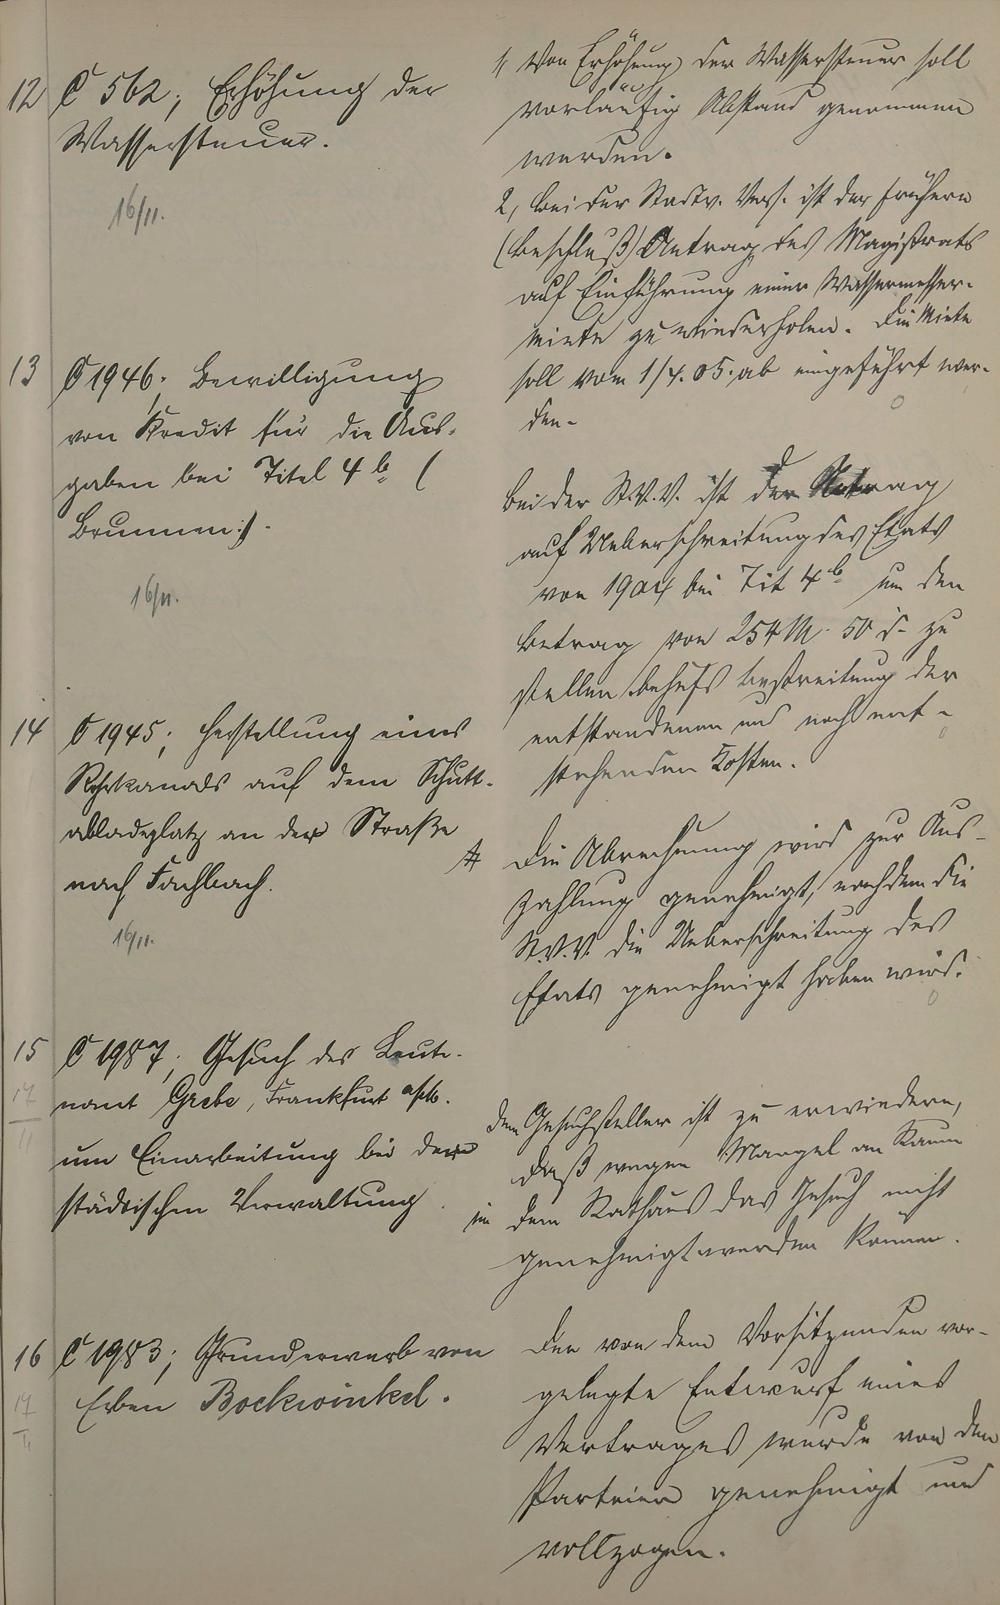 12 C 562; Erhöhung der
Wassersteuer.
16/11.
1, Von Erhöhung der Wassersteuer soll
vorläufig Abstand genommen
werden.
2, bei der Stadtv. Vers. ist der frühere
(Beschluß) Antrag des Magistrats
auf Einführung einer Wassermesser-
miete zu wiederholen. Die Miete
soll vom 1/4. 05. ab eingeführt wer-
den.
13 C 1946; Bewilligung
von Kredit für die Aus-
gaben bei Titel 4 b (
Brunnen:).
16/11.
bei der St.V.V. ist der Antrag
auf Ueberschreitung des Etats
von 1904 bei Tit 4 b um den
Betrag von 254 M. 50 d. zu
stellen behufs Bestreitung der
entstandenen und noch ent-
stehenden Kosten.
14 C 1945; Herstellung eines
Rohrkanals auf dem Schutt-
abladeplatz an der Straße
nach Fachbach.
16/11.
Die Abrechnung wird zur Aus-
zahlung genehmigt, nachdem die
St.V.V. die Ueberschreitung des
Etats genehmigt haben wird.
15 C 1987; Gesuch des Leute-
nant Grebe, Frankfurt a/M.
um Einarbeitung bei der
städtischen Verwaltung
17/11
dem Gesuchsteller ist zu erwiedern,
daß wegen Mangel an Raum
im dem Rathaus das Gesuch nicht
genehmigt werden könne.
16 C 1983; Grunderwerb von
Erben Bockwinkel.
17/11
Der von dem Vorsitzenden vor-
gelegte Entwurf eines
Vertrages wurde von den
Parteien genehmigt und
vollzogen.